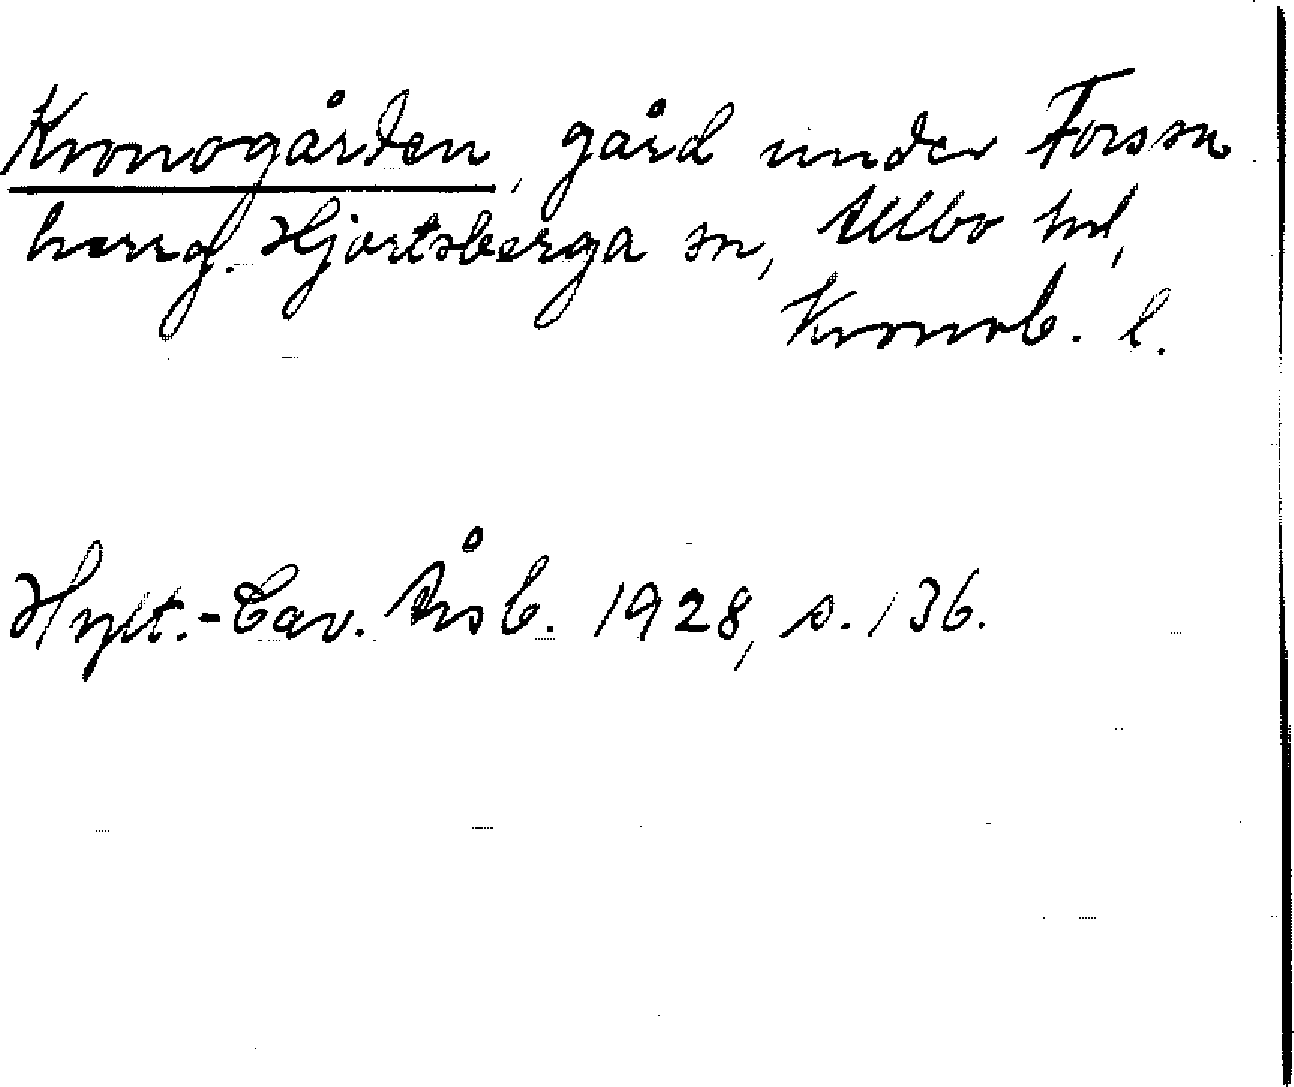 Kronogården, gård under Forssa
herrg. Hjortsberga sn, Allbo hd,
Kronob. l.
Hylt.-Cav. Årsb. 1928, s. 136.